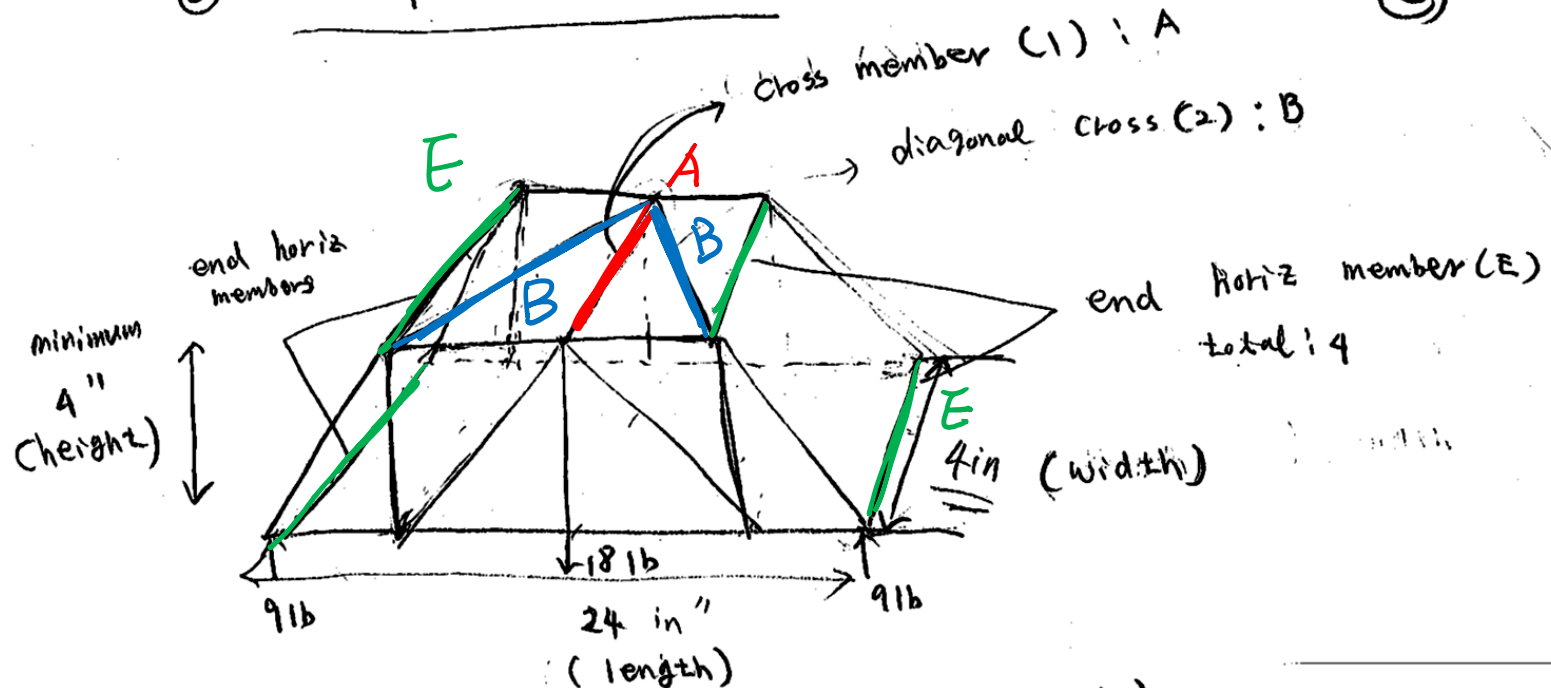 cross member (1) : A
→ diagonal cross(2) : B
E
A
B
B
end horiz
members
end horiz member(E)
total : 4
minimum
4"
(height)
E
4in (width)
18 lb
9lb
9lb
24 in"
(length)